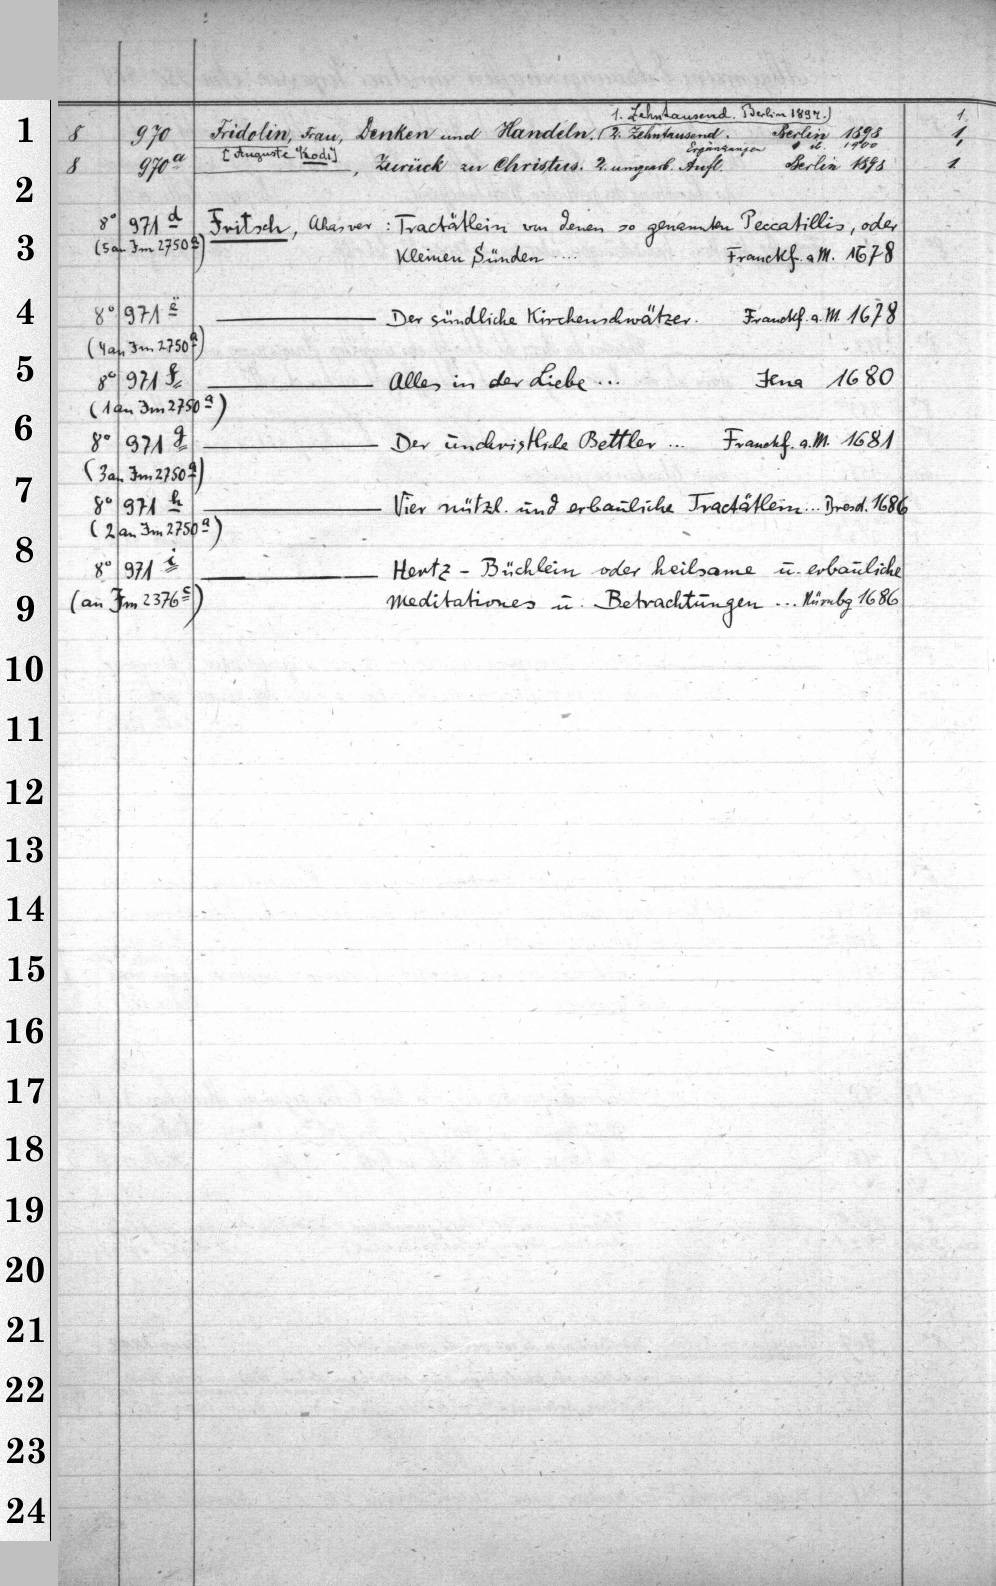 1. Zehntausend. Berlin 1897.) 1.
1 8 970 Fridolin, Frau, Denken und Handeln. (2. Zehntausend. Berlin 1898 1,
[Auguste Kodi] Ergänzungen 1900 1
8 970a ———, Zurück zu Christus. 2. umgearb. Aufl. Berlin 1898 1
2
8° 971 d Fritsch, Ahasver : Tractätlein von denen so genannten Peccatillis, oder
3 (5 an Im 2750 a) Kleinen Sünden .... Franckf. a M. 1678
4 8° 971 e ——— Der sündliche Kirchenschwätzer. Franckf. a. M. 1678
(4 an Im 2750 a)
5 8° 971 f ——— Alles in der Liebe ... Jena 1680
(1 an Im 2750 a)
6 8° 971 g ——— Der unchristliche Bettler ... Franckf. a. M. 1681
(3 an Im 2750 a)
7 8° 971 h ——— Vier nützl. und erbauliche Tractätlein ... Dresd. 1686
(2 an Im 2750 a)
8 8° 971 i ——— Hertz - Büchlein oder heilsame u. erbauliche
9 (an Im 2376 c) meditationes u. Betrachtungen ... Nürnbg 1686
10
11
12
13
14
15
16
17
18
19
20
21
22
23
24